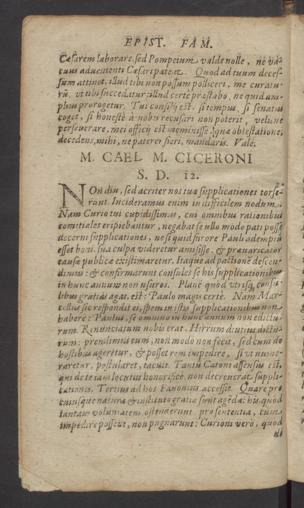 EPIST. FAM.
Cæsarem laborare, sed Pompeium valde nolle, ne va-
cuus advenienti Cæsari pateat. Quod ad tuum deces-
sum attinet, illud tibi non possum polliceri, me curatu-
rū, ut tibi succedatur: illud certè præstabo, ne quid am-
plius prorogetur. Tui consilij est, si tempus, si senatus
coget, si honestè à nobis recusari non poterit, velisne
perseverare. mei officij est meminisse, qua obtestatione,
decedens, mihi, ne paterer fieri, mandaris. Vale.
M. CAEL M. CICERONI
S. D. 12.
NOn diu, sed acriter nos tuæ supplicationes torse-
runt. Incideramus enim in difficilem nodum.
Nam Curio tui cupidissimus, cui omnibus rationibus
comitiales eripiebantur, negabat se ullo modo pati posse
decerni supplicationes, ne si quid furore Pauli ademptū
esset boni, sua culpa videretur amisisse, & prævaricator
causæ publicæ existimaretur. Itaque ad pactionē descen-
dimus: & confirmarunt consules se his supplicationibus
in hunc annum non usuros. Planè quod utrisq, consu-
libus gratias agas, est: Paulo magis certè. Nam Mar-
cellus sic respondit ei, spem in istis supplicationibus non
habere: Paulus, se omnino in hunc annum non edictu-
rum. Renunciatum nobis erat, Hirrum diutius dictu-
rum: prendimus eum, non modo non fecit, sed cum de
hostibus ageretur, & posset rem impedire, si ut nume-
raretur, postularet, tacuit. Tantū Catoni assensus est,
qui de te tam locutus honorificè, non decrerat suppli-
cationes. Tertius ad hos Favonius accessit. Quare pro
cuiusque natura & instituto gratiæ sunt agēdæ: his, quod
tantùm voluntatem ostenderunt, pro sententia, cùm
impedire possent, non pugnarunt: Curioni verò, quod